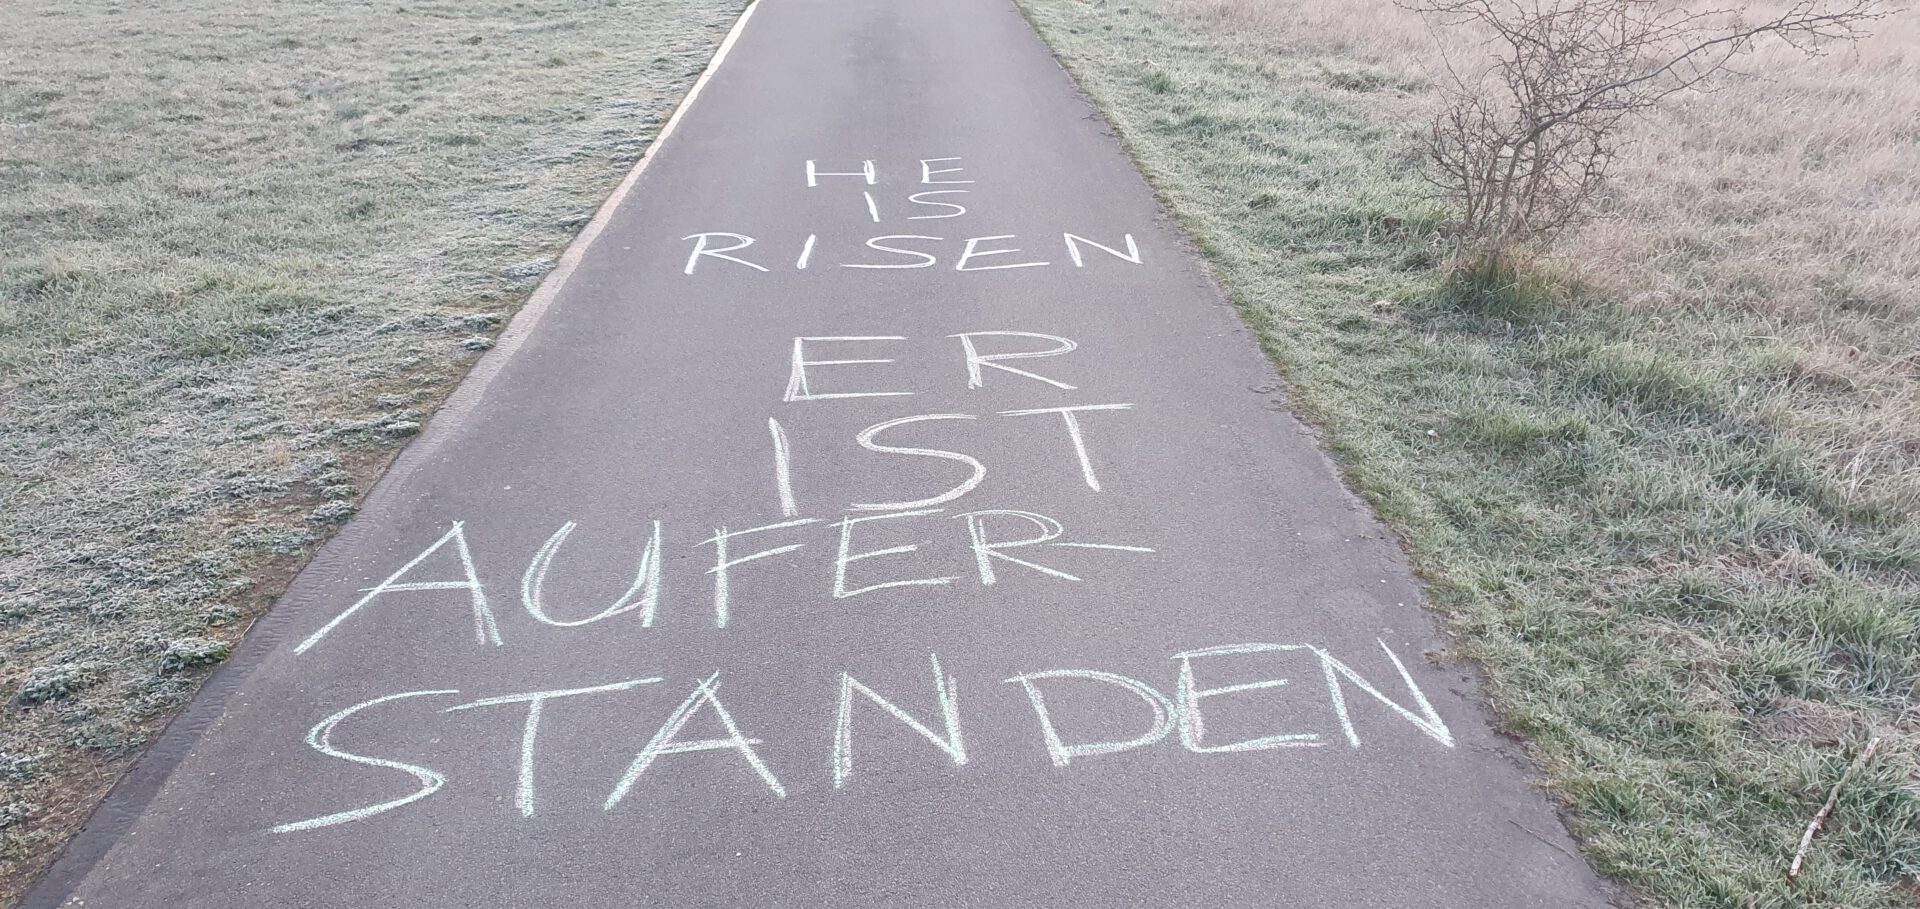 HE
IS
RISEN
ER
IST
AUFER-
STANDEN